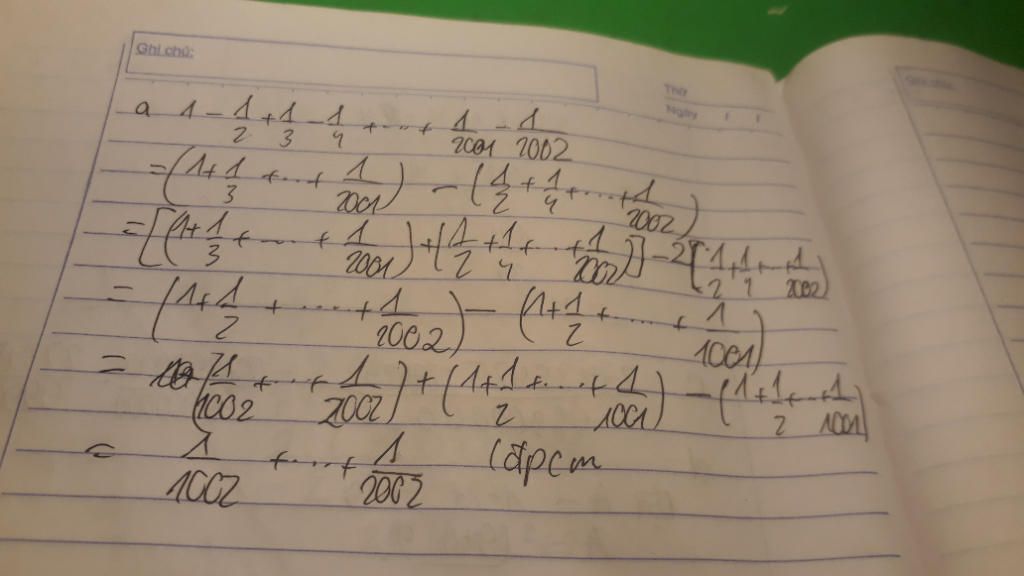 Ghi chú:
Thứ
Ngày / /
a 1 - 1/2 + 1/3 - 1/4 + ... + 1/2001 - 1/2002
= (1 + 1/3 + ... + 1/2001) - (1/2 + 1/4 + ... + 1/2002)
= [(1 + 1/3 + ... + 1/2001) + (1/2 + 1/4 + ... + 1/2002)] - 2[1/2 + 1/4 + ... + 1/2002)
= (1 + 1/2 + ... + 1/2002) - (1 + 1/2 + ... + 1/1001)
= (1/1002 + ... + 1/2002) + (1 + 1/2 + ... + 1/1001) - (1 + 1/2 + ... + 1/1001)
= 1/1002 + ... + 1/2002 (đpcm